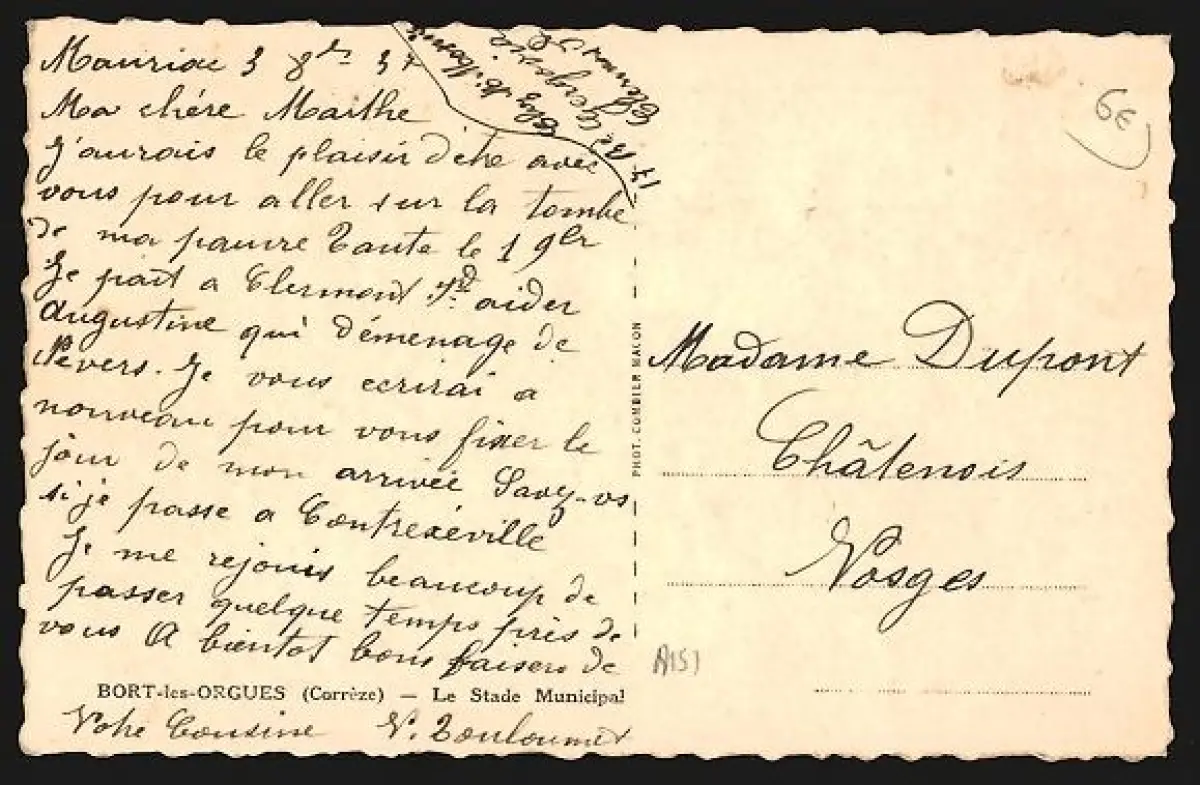 Mauriac 3 8bre 37
Ma chére Marthe
J'aurais le plaisir d'être avec
vous pour aller sur la tombe
de ma pauvre Tante le 1 9br
Je part a Clermont pd aider
Augustine qui démenage de
Nevers. Je vous ecrirai a
nouveau pour vous fixer le
jour de mon arrivée Savez-vs
si je passe a Contrexéville
Je me rejouis beaucoup de
passer quelque temps près de
vous A bientot bons baisers de
BORT-les-ORGUES (Corrèze) — Le Stade Municipal
Votre Cousine V.
Chez M.
17 Rue
Clermont
PHOT. COMBIER MACON
6€
Madame Dupont
Châtenois
Vosges
A151